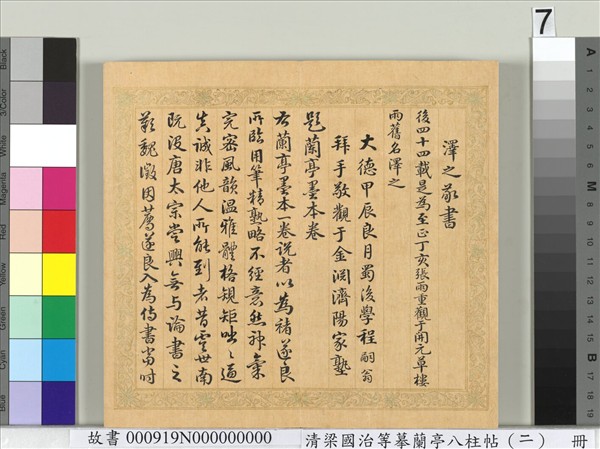 澤之敬書
後四十四載是為至正丁亥張雨重觀于開元草樓
雨舊名澤之
大德甲辰良月蜀後學程嗣翁
拜手敬觀于金淵濟陽家塾
題蘭亭墨本卷
右蘭亭墨本一卷說者以為褚遂良
所臨用筆精熟略不經意然神氣
完密風韻溫雅體格規矩咄咄逼
真誠非他人所能到者昔虞世南
既沒唐太宗嘗興無與論書之
歎魏徵因薦遂良入為侍書當時
7
Black
3/Color
White
Magenta
Red
Yellow
Green
Cyan
Blue
A
1
2
3
4
5
6
M
8
9
10
11
12
13
14
15
B
17
18
19
故書 000919N000000000 清梁國治等摹蘭亭八柱帖（二） 冊